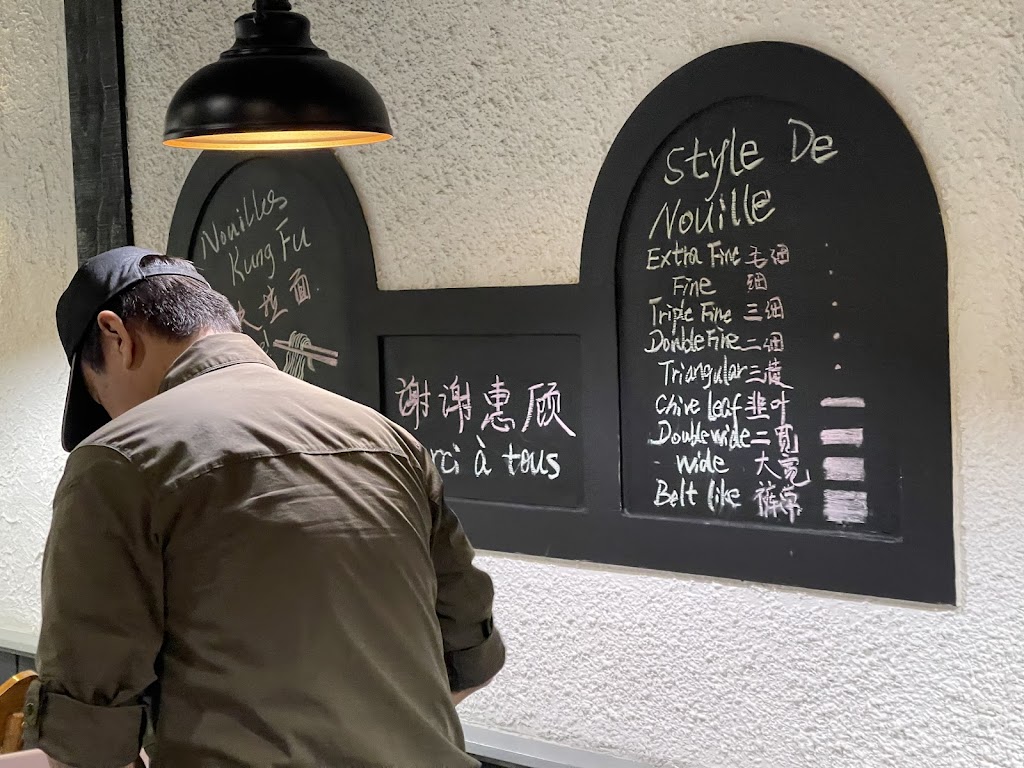 Nouilles
Kung Fu
拉面
谢谢惠顾
à tous
Style De
Nouille
Extra Fine 毛细
Fine 细
Triple Fine 三细
Double Fine 二细
Triangular 三棱
Chive leaf 韭叶
Double wide 二宽
wide 大宽
Belt like